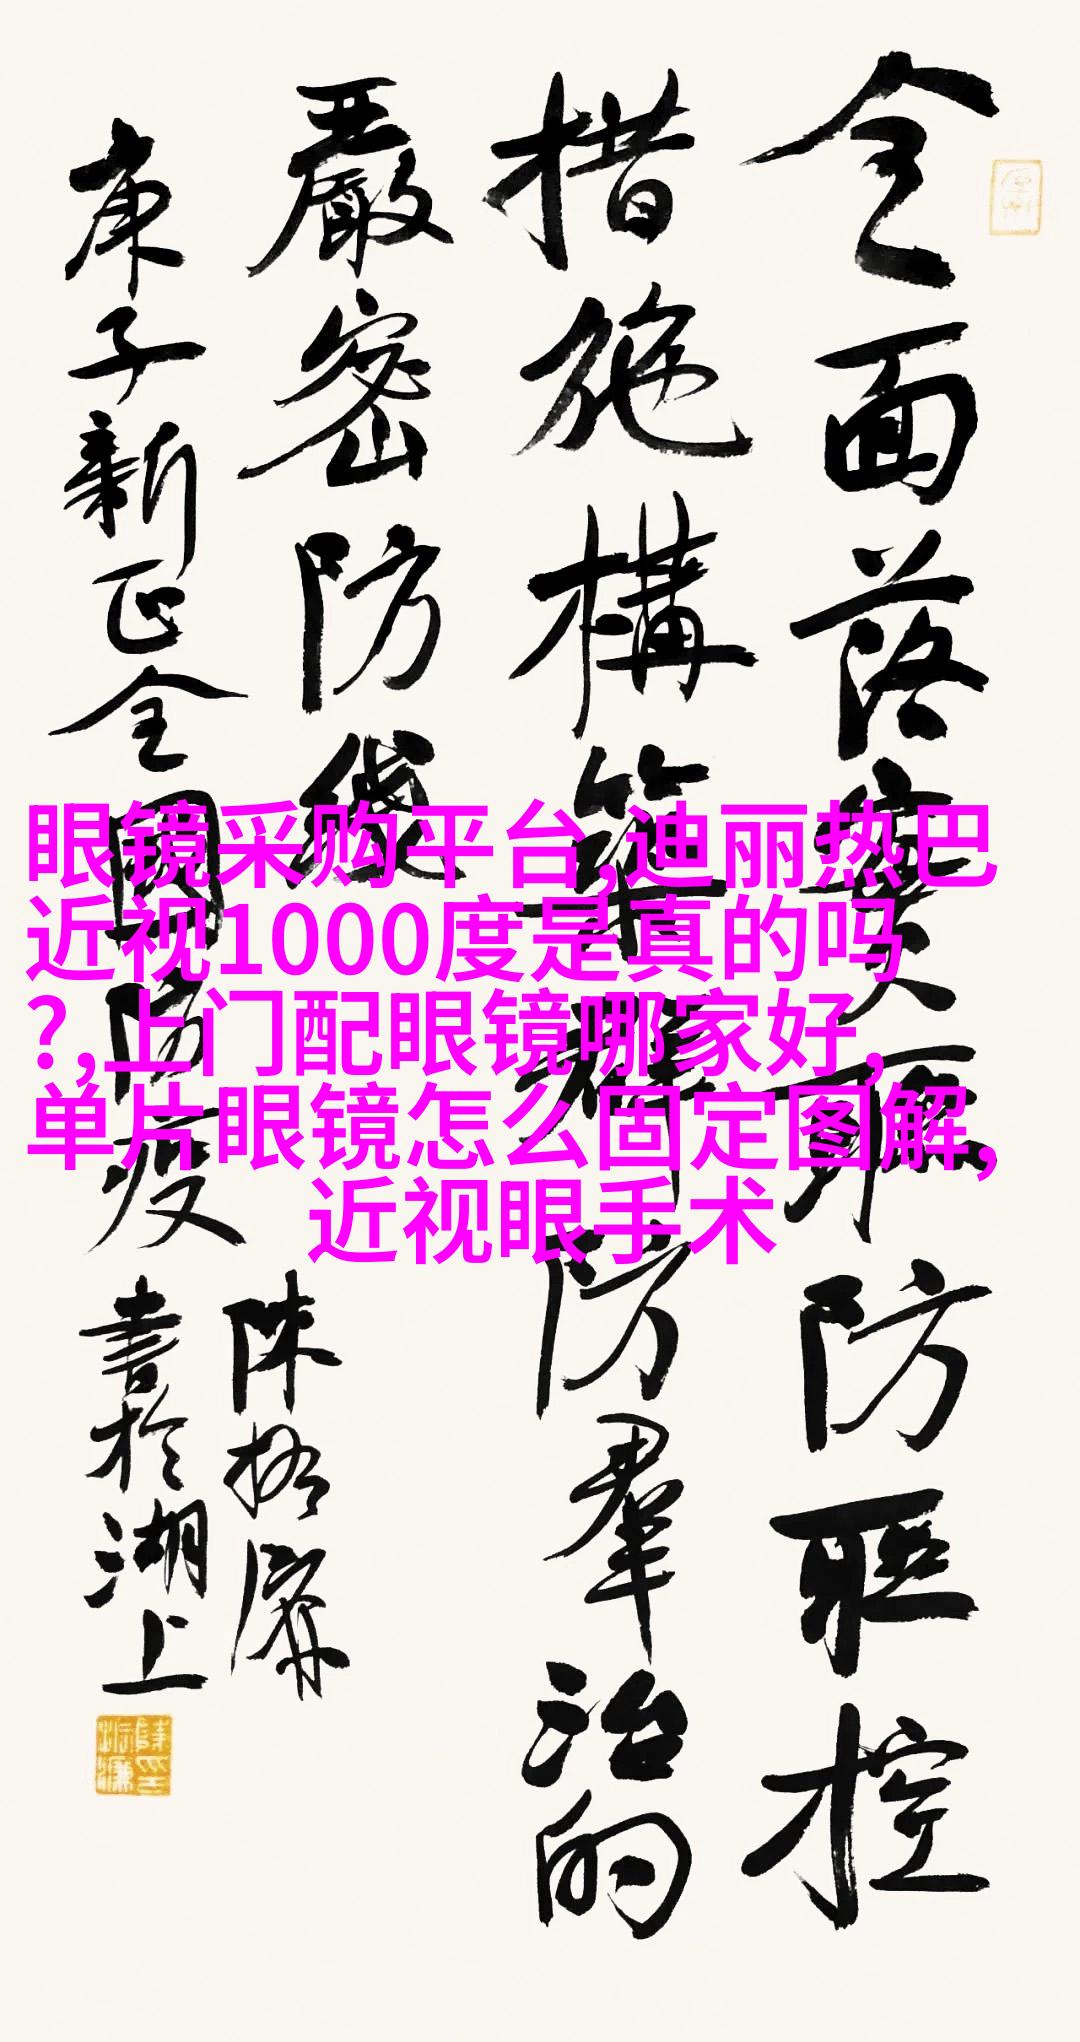 全面落实联防联控
措施構築群防群治的
嚴密防线
庚子新正全國防疫
陈振濂
書於湖上
眼镜采购平台,迪丽热巴
近视1000度是真的吗
?,上门配眼镜哪家好,
单片眼镜怎么固定图解,
近视眼手术